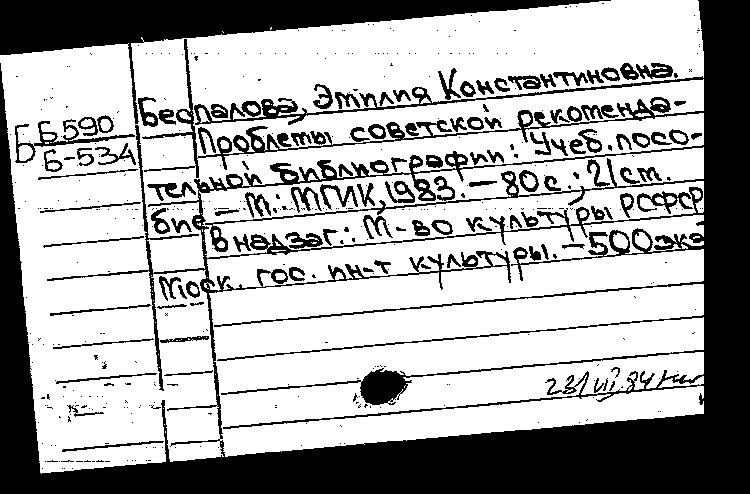 Беспалова, Эмилия Константиновна.
Б Б590
Б-534
Проблемы советской рекоменда-
тельной библиографии: Учеб. посо-
бие – М.: МГИК, 1983. – 80 с.; 21 см.
В надзаг.: М-во культуры РСФСР
Моск. гос. ин-т культуры. – 500 экз